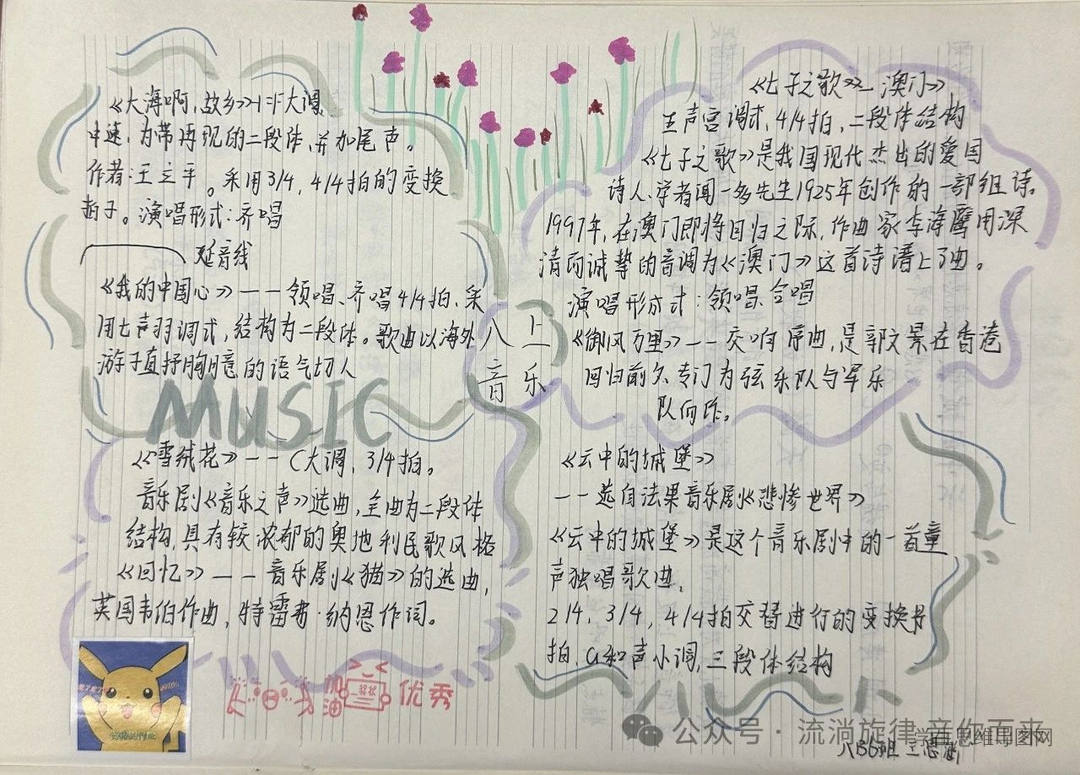 《大海啊,故乡》1=F大调,
中速,为带再现的二段体,并加尾声。
作者:王立平。采用3/4,4/4拍的变换
拍子。演唱形式:齐唱
延音线
《我的中国心》——领唱、齐唱4/4拍、采
用七声羽调式,结构为二段体。歌曲以海外
游子直抒胸臆的语气切入
MUSIC
《雪绒花》——C大调,3/4拍。
音乐剧《音乐之声》选曲,全曲为二段体
结构,具有较浓郁的奥地利民歌风格
《回忆》——音乐剧《猫》的选曲,
英国韦伯作曲,特雷弗·纳恩作词。
八上
音乐
《七子之歌》—澳门》
五声宫调式,4/4拍,二段体结构
《七子之歌》是我国现代杰出的爱国
诗人、学者闻一多先生1925年创作的一部组诗。
1997年,在澳门即将回归之际,作曲家李海鹰用深
情而诚挚的音调为《澳门》这首诗谱上了曲。
演唱形式:领唱、合唱
《御风万里》——交响序曲,是郭文景在香港
回归前夕,专门为弦乐队与军乐
队而作。
《云中的城堡》
——选自法果音乐剧《悲惨世界》
《云中的城堡》是这个音乐剧中的一首童
声独唱歌曲,
2/4,3/4,4/4拍交替进行的变换
拍,a和声小调,三段体结构
加油
奖状
优秀
公众号·流淌旋律 音你而来
学习思维导图网